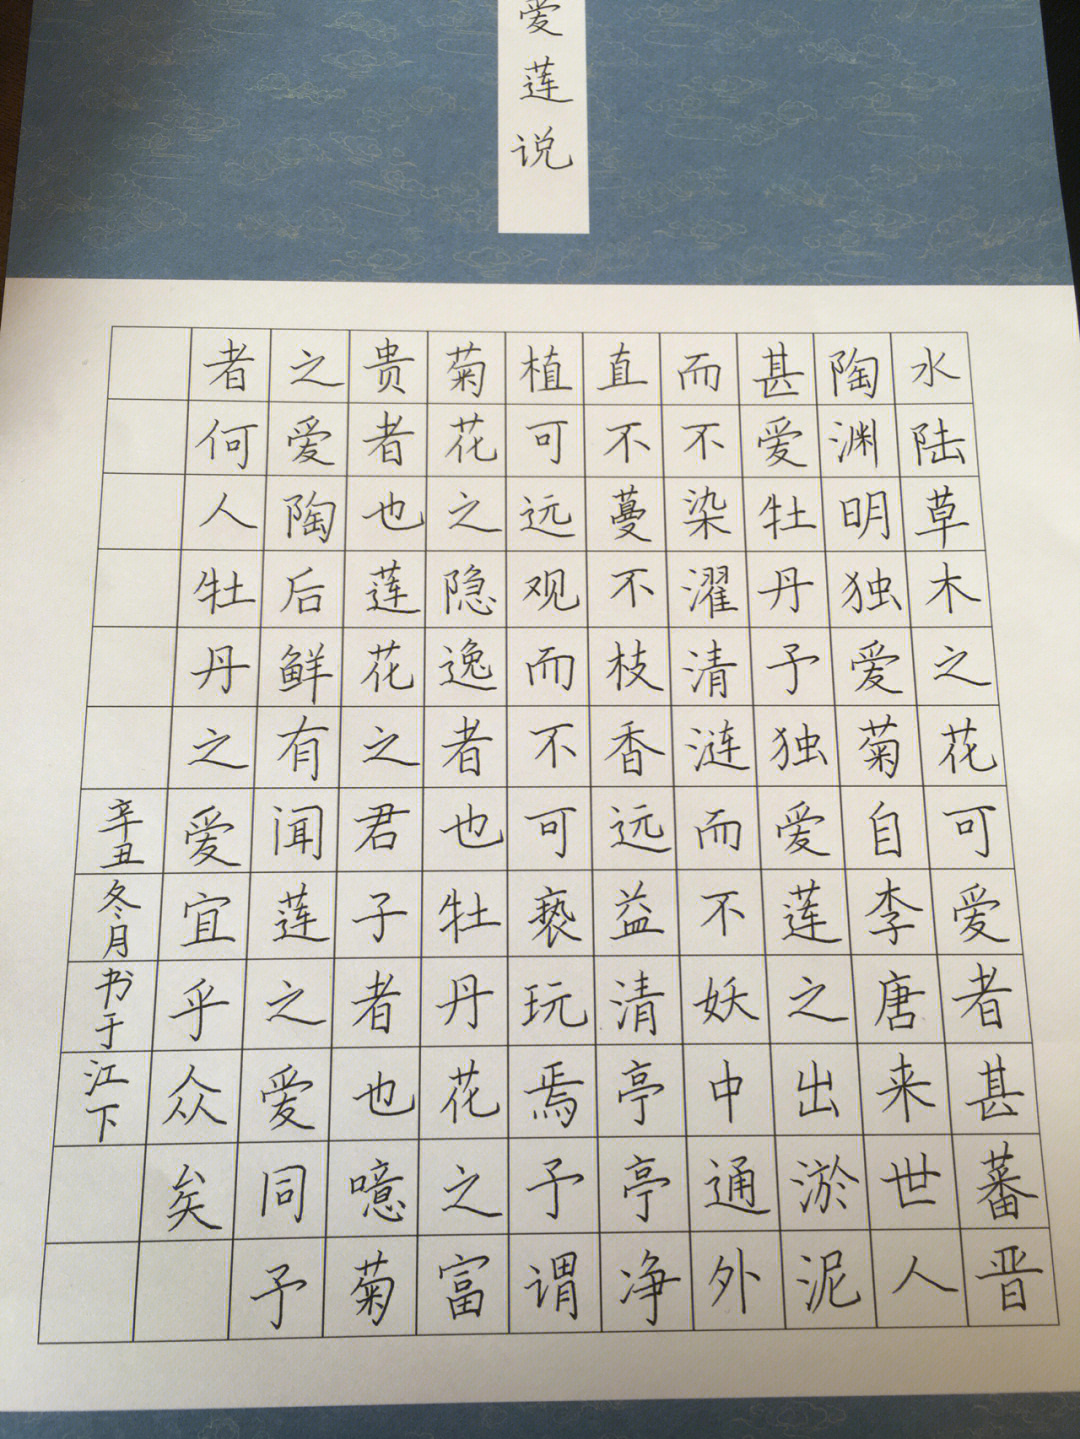 爱莲说
水陆草木之花可爱者甚蕃晋
陶渊明独爱菊自李唐来世人
甚爱牡丹予独爱莲之出淤泥
而不染濯清涟而不妖中通外
直不蔓不枝香远益清亭亭净
植可远观而不可亵玩焉予谓
菊花之隐逸者也牡丹花之富
贵者也莲花之君子者也噫菊
之爱陶后鲜有闻莲之爱同予
者何人牡丹之爱宜乎众矣
辛丑冬月书于江下